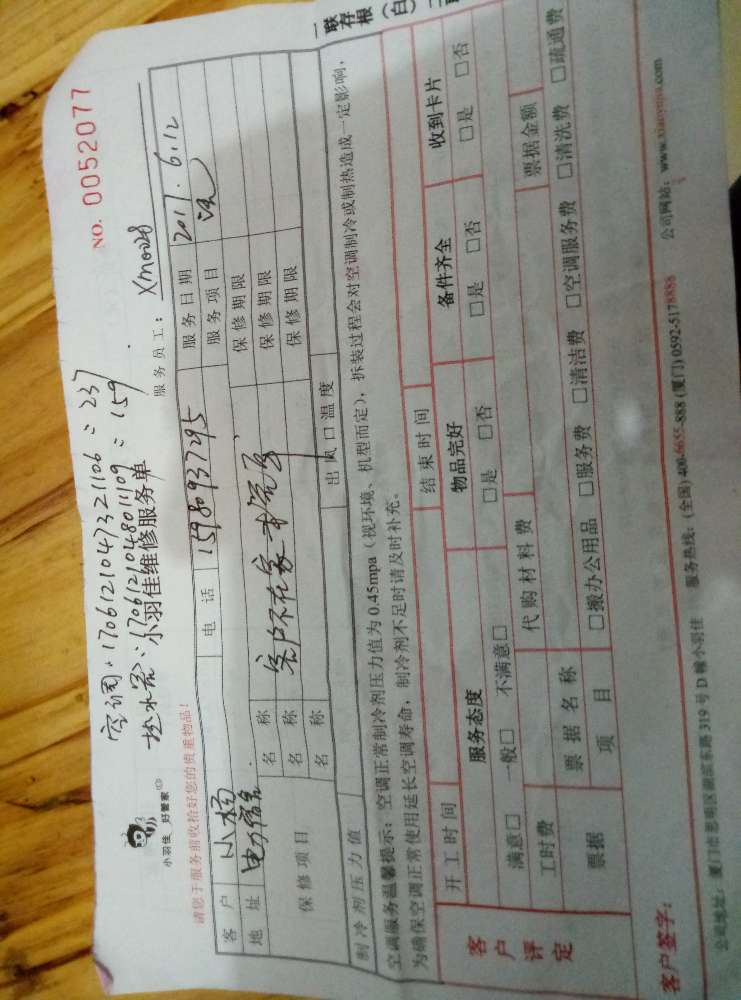 空调:170612104732 1106:237
热水器:170612104801 1109:159
小羽佳 好管家
小羽佳维修服务单
NO. 0052077
请您于服务前收拾好您的贵重物品!
服务员工: Xm0028
客户 小杨 电话 15980937295 服务日期 2017.6.12
地址 服务项目 洗
保修项目 名称 保修期限
名称 客户不在家 保修期限
名称 保修期限
制冷剂压力值 出风口温度
空调服务温馨提示:空调正常制冷剂压力值为0.45mpa(视环境、机型而定),拆装过程会对空调制冷或制热造成一定影响,
为确保空调正常使用延长空调寿命,制冷剂不足时请及时补充。
开工时间 结束时间
客户评定 服务态度 物品完好 备件齐全 收到卡片
满意□ 一般□ 不满意□ □是 □否 □是 □否 □是 □否
工时费 代购材料费
票据 票据名称 票据金额
项目 □搬办公用品 □服务费 □清洁费 □空调服务费 □清洗费 □疏通费
客户签字:
公司地址:厦门市思明区湖滨东路319号D幢小羽佳 服务热线:(全国)400-6655-888 (厦门)0592-5178888 公司网站:www.xiaoyujia.com
一联存根(白)